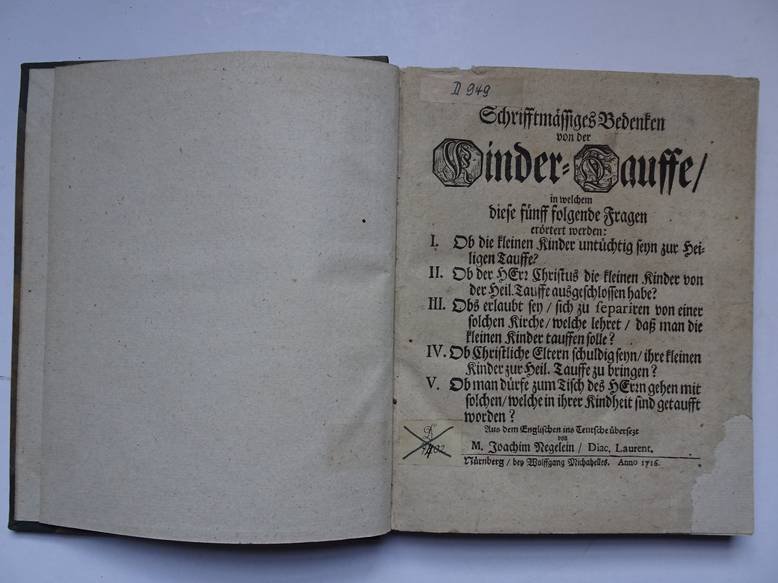 D 949
Schrifftmässiges Bedenken
von der
Kinder-Tauffe/
in welchem
diese fünff folgende Fragen
erörtert werden:
I. Ob die kleinen Kinder untüchtig seyn zur Hei-
ligen Tauffe?
II. Ob der HErr Christus die kleinen Kinder von
der Heil. Tauffe ausgeschlossen habe?
III. Obs erlaubt sey/ sich zu separiren von einer
solchen Kirche/ welche lehret/ daß man die
kleinen Kinder tauffen solle?
IV. Ob Christliche Eltern schuldig seyn/ ihre kleinen
Kinder zur Heil. Tauffe zu bringen?
V. Ob man dürfe zum Tisch des HErrn gehen mit
solchen/ welche in ihrer Kindheit sind getaufft
worden?
Aus dem Englischen ins Teutsche übersezt
von
M. Joachim Negelein/ Diac. Laurent.
Nürnberg/ bey Wolffgang Michahelles. Anno 1716.